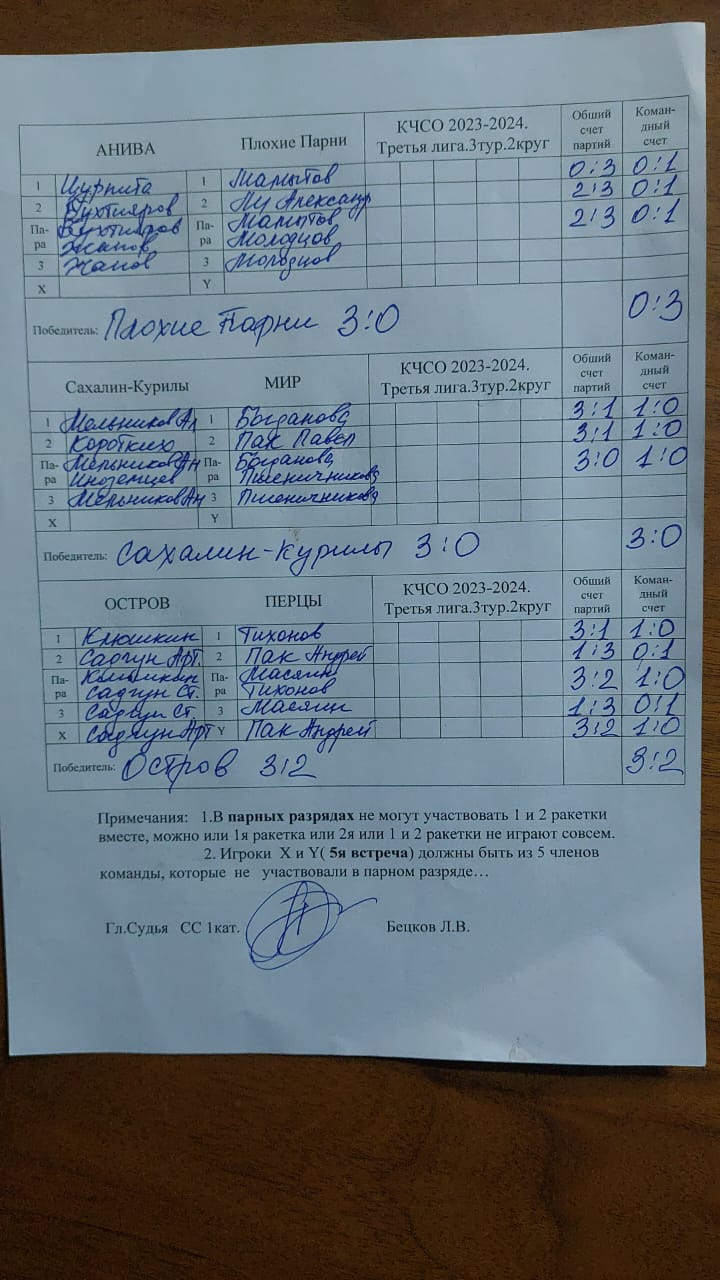 АНИВА Плохие Парни КЧСО 2023-2024. Третья лига.3тур.2круг Общий счет партий Коман-дный счет
1 Цурпита 1 Мамытов 0:3 0:1
2 Бухтияров 2 Ну Александр 2:3 0:1
Па-ра Бухтияров Жамов Па-ра Мамытов Молодцов 2:3 0:1
3 Жамов 3 Молодцов
X Y
Победитель: Плохие Парни 3:0 0:3
Сахалин-Курилы МИР КЧСО 2023-2024. Третья лига.3тур.2круг Общий счет партий Коман-дный счет
1 Мельников Ал 1 Богданова 3:1 1:0
2 Коротких 2 Пак Павел 3:1 1:0
Па-ра Мельников Ан Иноземцев Па-ра Богданова Пшеничникова 3:0 1:0
3 Мельников Ан 3 Пшеничникова
X Y
Победитель: Сахалин-Курилы 3:0 3:0
ОСТРОВ ПЕРЦЫ КЧСО 2023-2024. Третья лига.3тур.2круг Общий счет партий Коман-дный счет
1 Клюшкин 1 Тихонов 3:1 1:0
2 Садгун Арт. 2 Пак Андрей 1:3 0:1
Па-ра Садгун Ст. Па-ра Масягин Тихонов 3:2 1:0
3 Садгун Ст. 3 Масягин 1:3 0:1
X Садгун Арт Y Пак Андрей 3:2 1:0
Победитель: Остров 3:2 3:2
Примечания: 1.В парных разрядах не могут участвовать 1 и 2 ракетки
вместе, можно или 1я ракетка или 2я или 1 и 2 ракетки не играют совсем.
2. Игроки X и Y( 5я встреча) должны быть из 5 членов
команды, которые не участвовали в парном разряде…
Гл.Судья СС 1кат. Бецков Л.В.